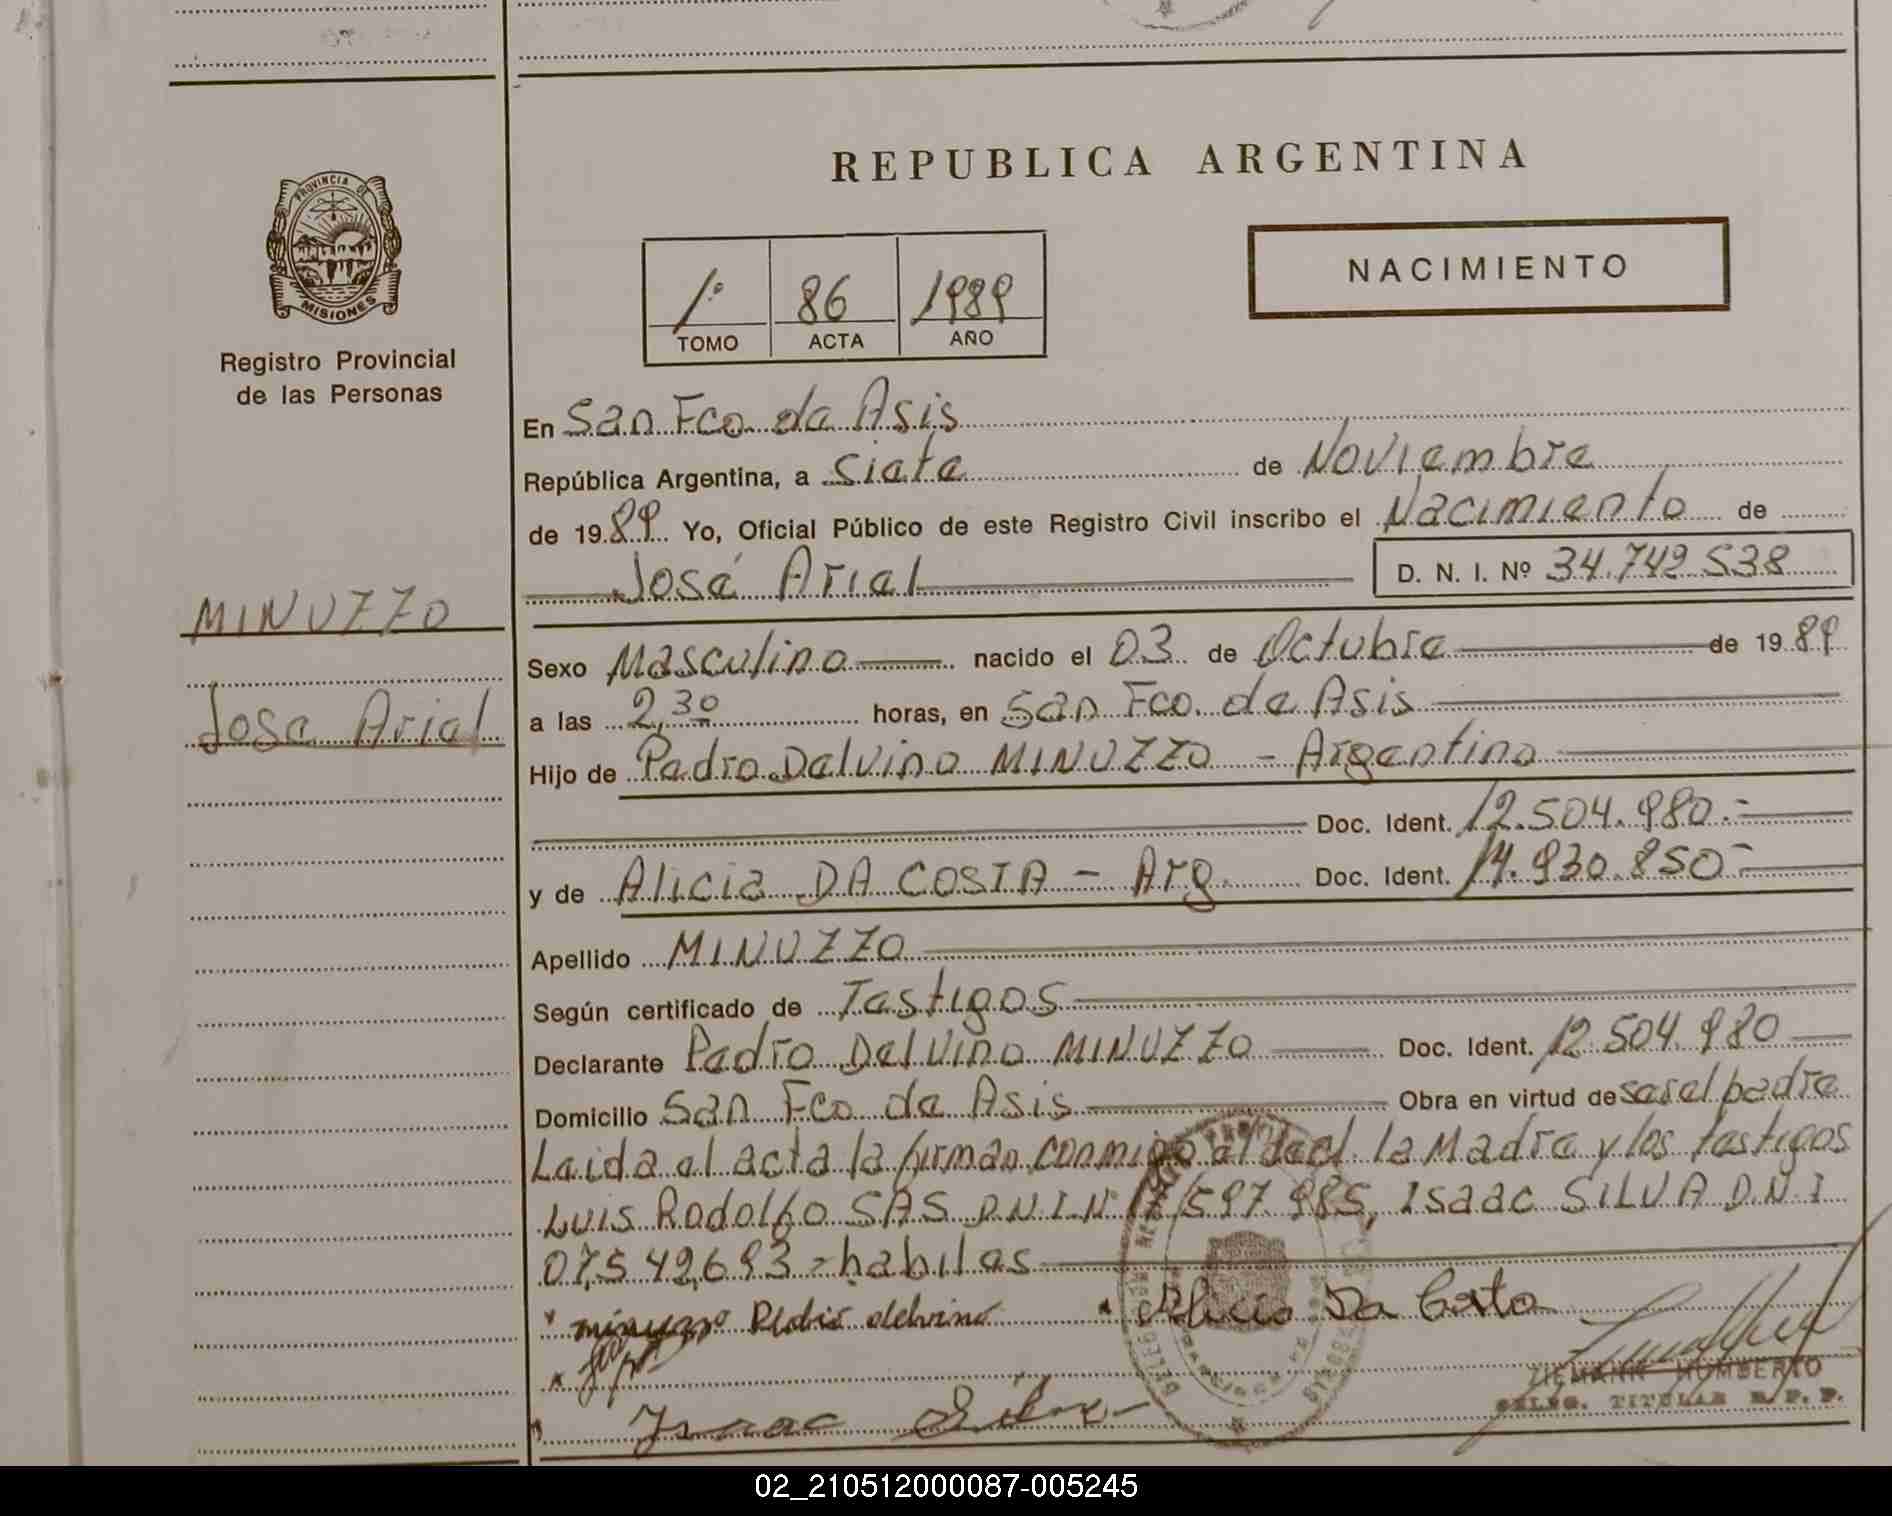 PROVINCIA DE
MISIONES
Registro Provincial
de las Personas
MINUZZO
Jose Ariel
REPUBLICA ARGENTINA
1º 86 1989
TOMO ACTA AÑO
NACIMIENTO
En San Fco de Asis
República Argentina, a Siete de Noviembre
de 1989 Yo, Oficial Público de este Registro Civil inscribo el Nacimiento de
José Ariel D. N. I. Nº 34.742.538
Sexo Masculino nacido el 03 de Octubre de 1989
a las 2,30 horas, en San Fco. de Asis
Hijo de Pedro Delvino MINUZZO - Argentino
Doc. Ident. 12.504.980.-
y de Alicia DA COSTA - Arg. Doc. Ident. 14.930.850-
Apellido MINUZZO
Según certificado de Testigos
Declarante Pedro Delvino MINUZZO Doc. Ident. 12.504.980
Domicilio San Fco de Asis Obra en virtud de ser el padre
Leida el acta la firman conmigo el decl. la Madre y los testigos
Luis Rodolfo SAS D.N.I.N 17,597.985, Isaac SILVA D.N.I
07,542,693 - habiles
minuzzo Pedro delvino Alicia Da Costa
Isaac Silva
ZIEMANN HUMBERTO
DELEG. TITULAR R. P. P.
02_210512000087-005245